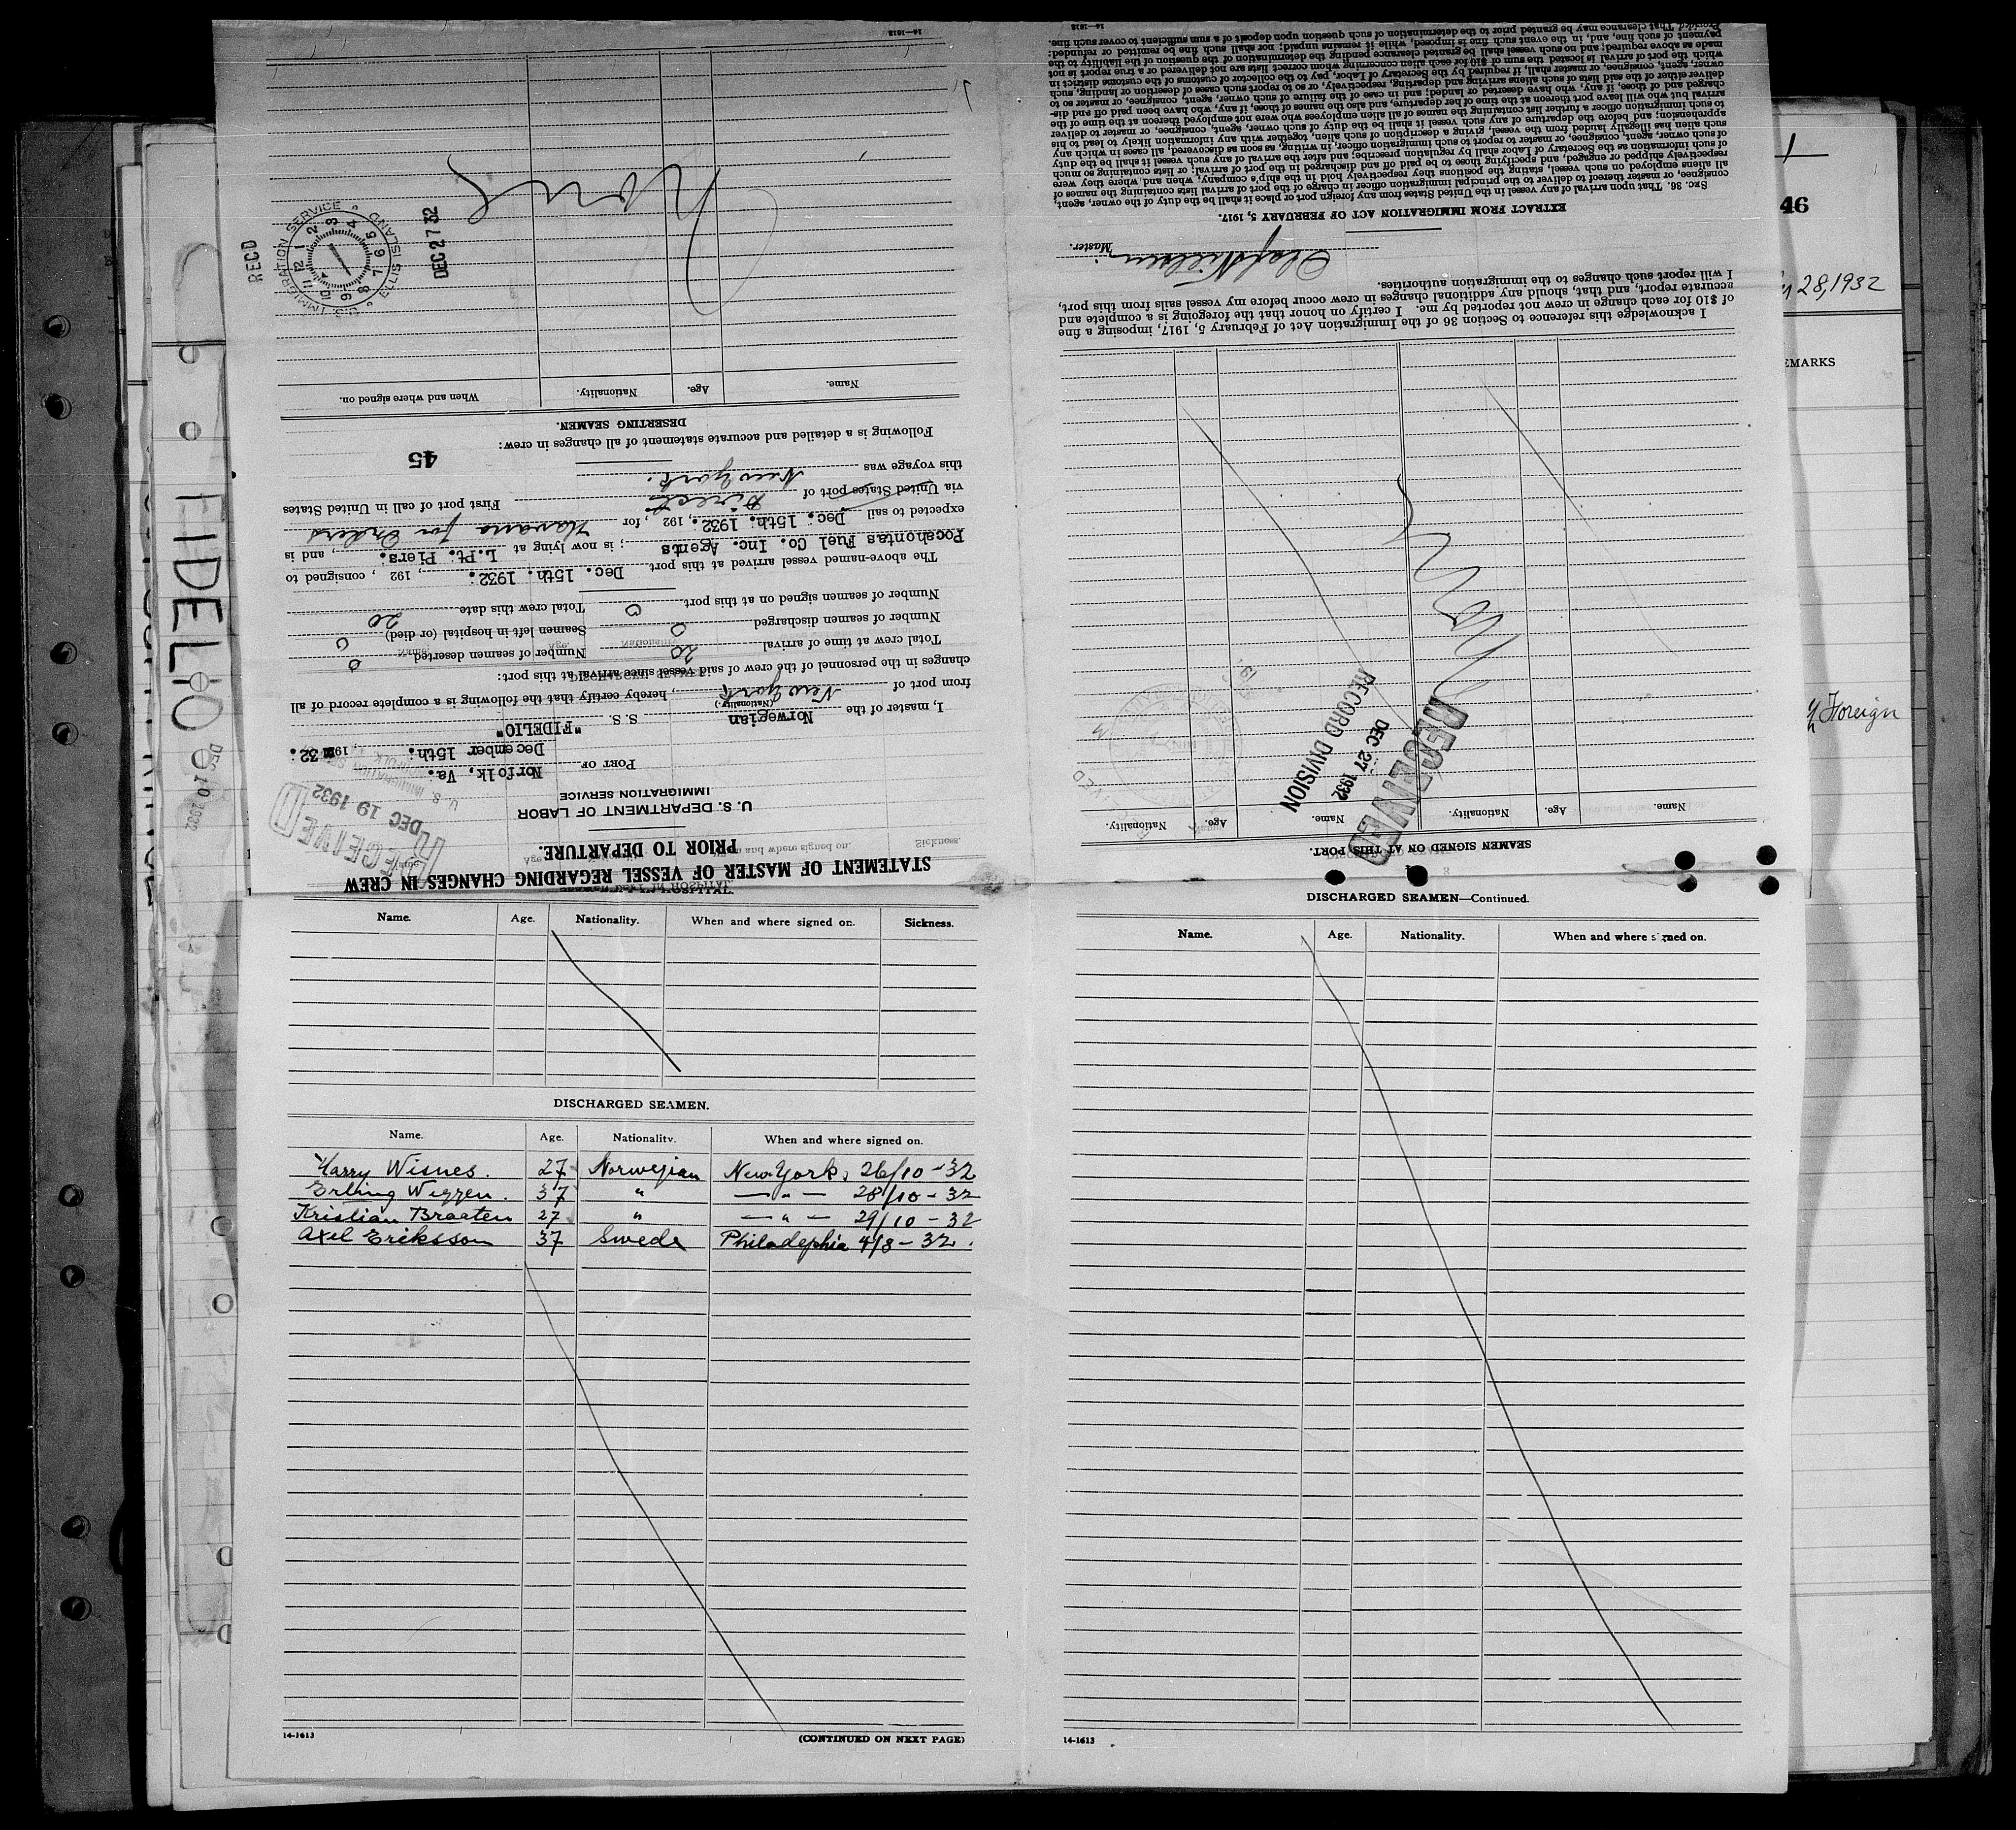 STATEMENT OF MASTER OF VESSEL REGARDING CHANGES IN CREW
PRIOR TO DEPARTURE.
U. S. DEPARTMENT OF LABOR
IMMIGRATION SERVICE
RECEIVED
DEC 19 1932
PORT OF Norfolk, Va.
December 15th. , 1932.
I, master of the Norwegian S. S. "FIDELIO"
(Nationality.)
from port of New York , hereby certify that the following is a complete record of all
changes in the personnel of the crew of said vessel since arrival at this port:
Total crew at time of arrival 20 Number of seamen deserted 0
Number of seamen discharged 0 Seamen left in hospital (or died) 0
Number of seamen signed on at this port 0 Total crew this date 20
The above-named vessel arrived at this port Dec. 15th. 1932. , 192 , consigned to
Pocahontas Fuel Co. Inc. Agents ; is now lying at L. Pt. Piers. , and is
expected to sail Dec. 15th. 1932. , 192 , for Havana for Orders
via United States port of Direct First port of call in United States
this voyage was New York.
Following is a detailed and accurate statement of all changes in crew: 45
DESERTING SEAMEN.
Name. Age. Nationality. When and where signed on.
None
RECD
DEC 27 32
U.S. IMMIGRATION SERVICE
ELLIS ISLAND
14-1613
SEAMEN SIGNED ON AT THIS PORT.
Name. Age. Nationality. Name. Age. Nationality.
RECEIVED
DEC 27 1932
RECORD DIVISION
I acknowledge this reference to Section 36 of the Immigration Act of February 5, 1917, imposing a fine
of $10 for each change in crew not reported by me. I certify on honor that the foregoing is a complete and
accurate report, and that, should any additional changes in crew occur before my vessel sails from this port,
I will report such changes to the immigration authorities.
Olaf Nielsen
Master.
EXTRACT FROM IMMIGRATION ACT OF FEBRUARY 5, 1917.
SEC. 36. That upon arrival of any vessel in the United States from any foreign port or place it shall be the duty of the owner, agent,
consignee, or master thereof to deliver to the principal immigration officer in charge of the port of arrival lists containing the names of
all aliens employed on such vessel, stating the positions they respectively hold in the ship's company, when and where they were
respectively shipped or engaged, and specifying those to be paid off and discharged in the port of arrival; or lists containing so much
of such information as the Secretary of Labor shall by regulation prescribe; and after the arrival of any such vessel it shall be the duty
of such owner, agent, consignee, or master to report to such immigration officer, in writing, as soon as discovered, all cases in which any
such alien has illegally landed from the vessel, giving a description of such alien, together with any information likely to lead to his
apprehension; and before the departure of any such vessel it shall be the duty of such owner, agent, consignee, or master to deliver
to such immigration officer a further list containing the names of all alien employees who were not employed thereon at the time of the
arrival but who will leave port thereon at the time of her departure, and also the names of those, if any, who have been paid off and dis-
charged and of those, if any, who have deserted or landed; and in case of the failure of such owner, agent, consignee, or master so to
deliver either of the said lists of such aliens arriving and departing, respectively, or so to report such cases of desertion or landing, such
owner, agent, consignee, or master shall, if required by the Secretary of Labor, pay to the collector of customs of the customs district in
which the port of arrival is located the sum of $10 for each alien concerning whom correct lists are not delivered or a true report is not
made as above required; and no such vessel shall be granted clearance pending the determination of the question of the liability to the
payment of such fine, and, in the event such fine is imposed, while it remains unpaid; nor shall such fine be remitted or refunded:
Provided, That clearance may be granted prior to the determination of such question upon deposit of a sum sufficient to cover such fine.
14-1613
FIDELIO
DEC 20 1932
1
46
28, 1932
EMARKS
Foreign
Name. Age. Nationality. When and where signed on. Sickness.
DISCHARGED SEAMEN.
Name. Age. Nationality. When and where signed on.
Harry Wisnes. 27 Norwegian New York, 26/10-32
Erling Wezzen. 37 " — " — 28/10-32
Kristian Braaten 27 " — " — 29/10-32
Axel Eriksson 37 Swede Philadephia 4/8-32.
14-1613
(CONTINUED ON NEXT PAGE)
DISCHARGED SEAMEN—Continued.
Name. Age. Nationality. When and where signed on.
14-1613